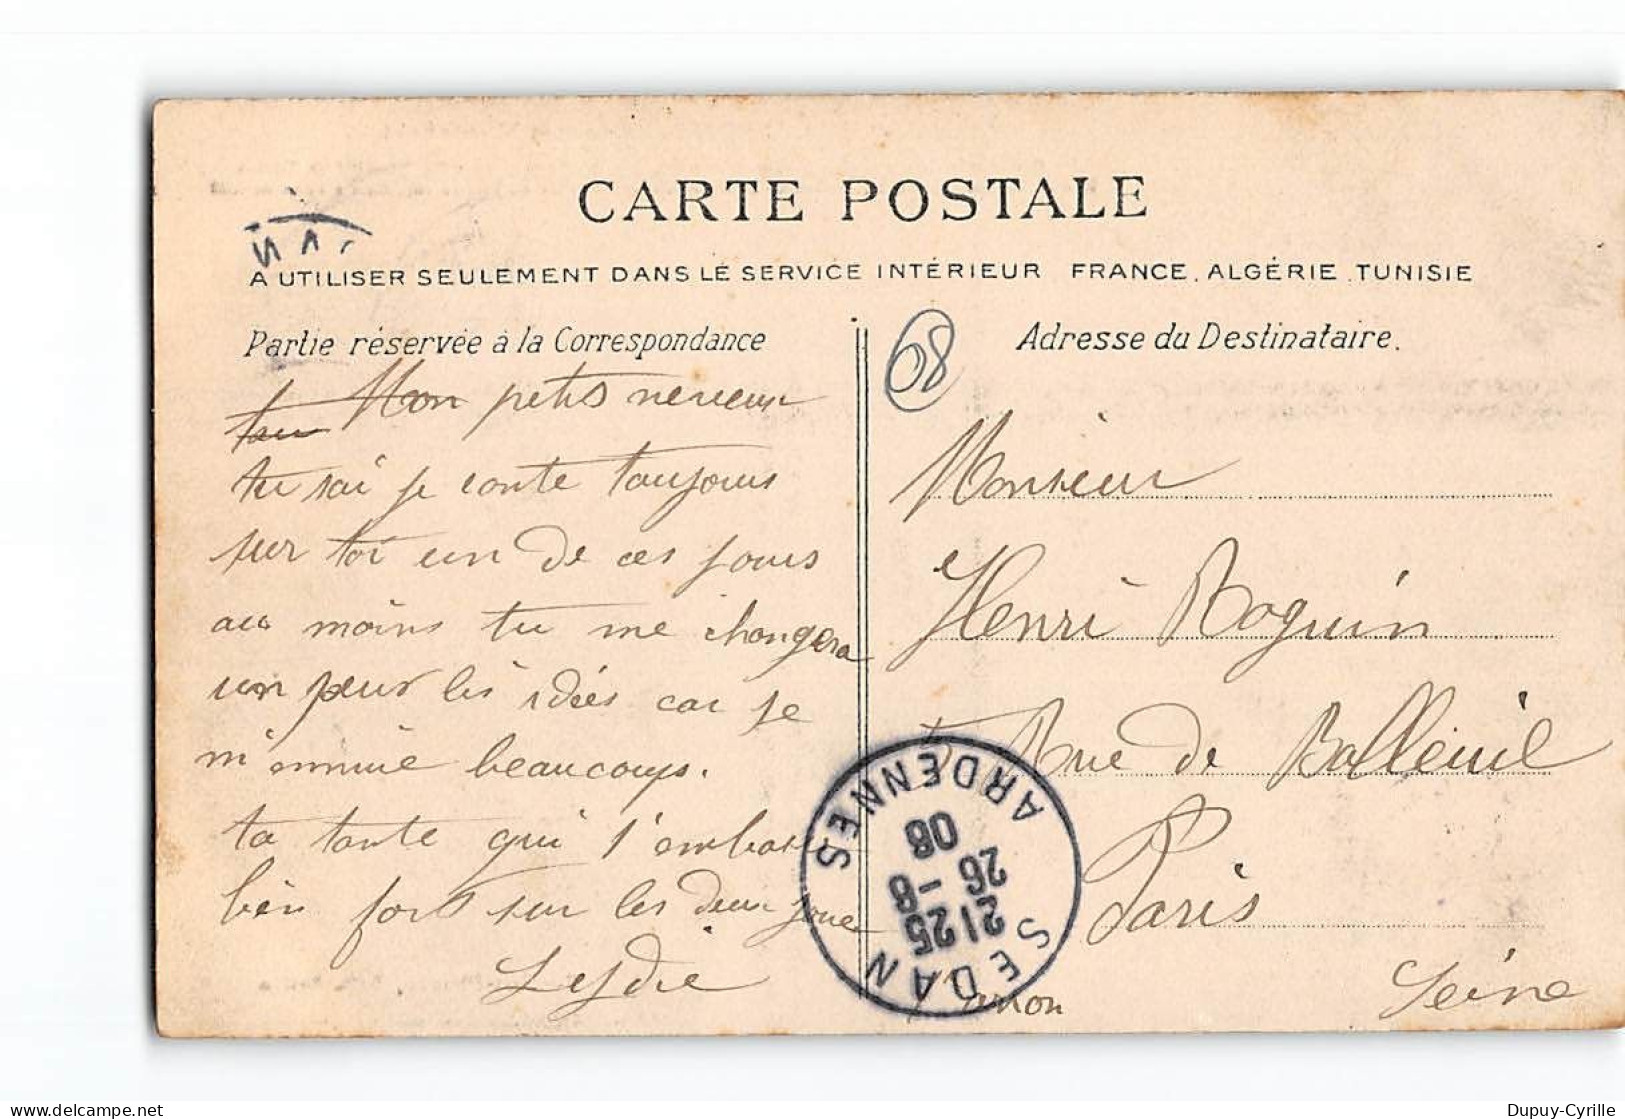 CARTE POSTALE
A UTILISER SEULEMENT DANS LE SERVICE INTÉRIEUR FRANCE, ALGÉRIE TUNISIE
Partie réservée à la Correspondance
Mon petis neveux
tu sai je conte toujours
sur toi un de ces jours
au moins tu me changera
un peux les idées car je
m'ennuie beaucoups.
ta tante qui t'embasse
bien fort sur les deux joue
Leydie
08
Adresse du Destinataire.
Monsieur
Henri Roguin
Rue de
Paris
Seine
SEDAN
ARDENNES
2125
26 -8
08
Dupuy-Cyrille